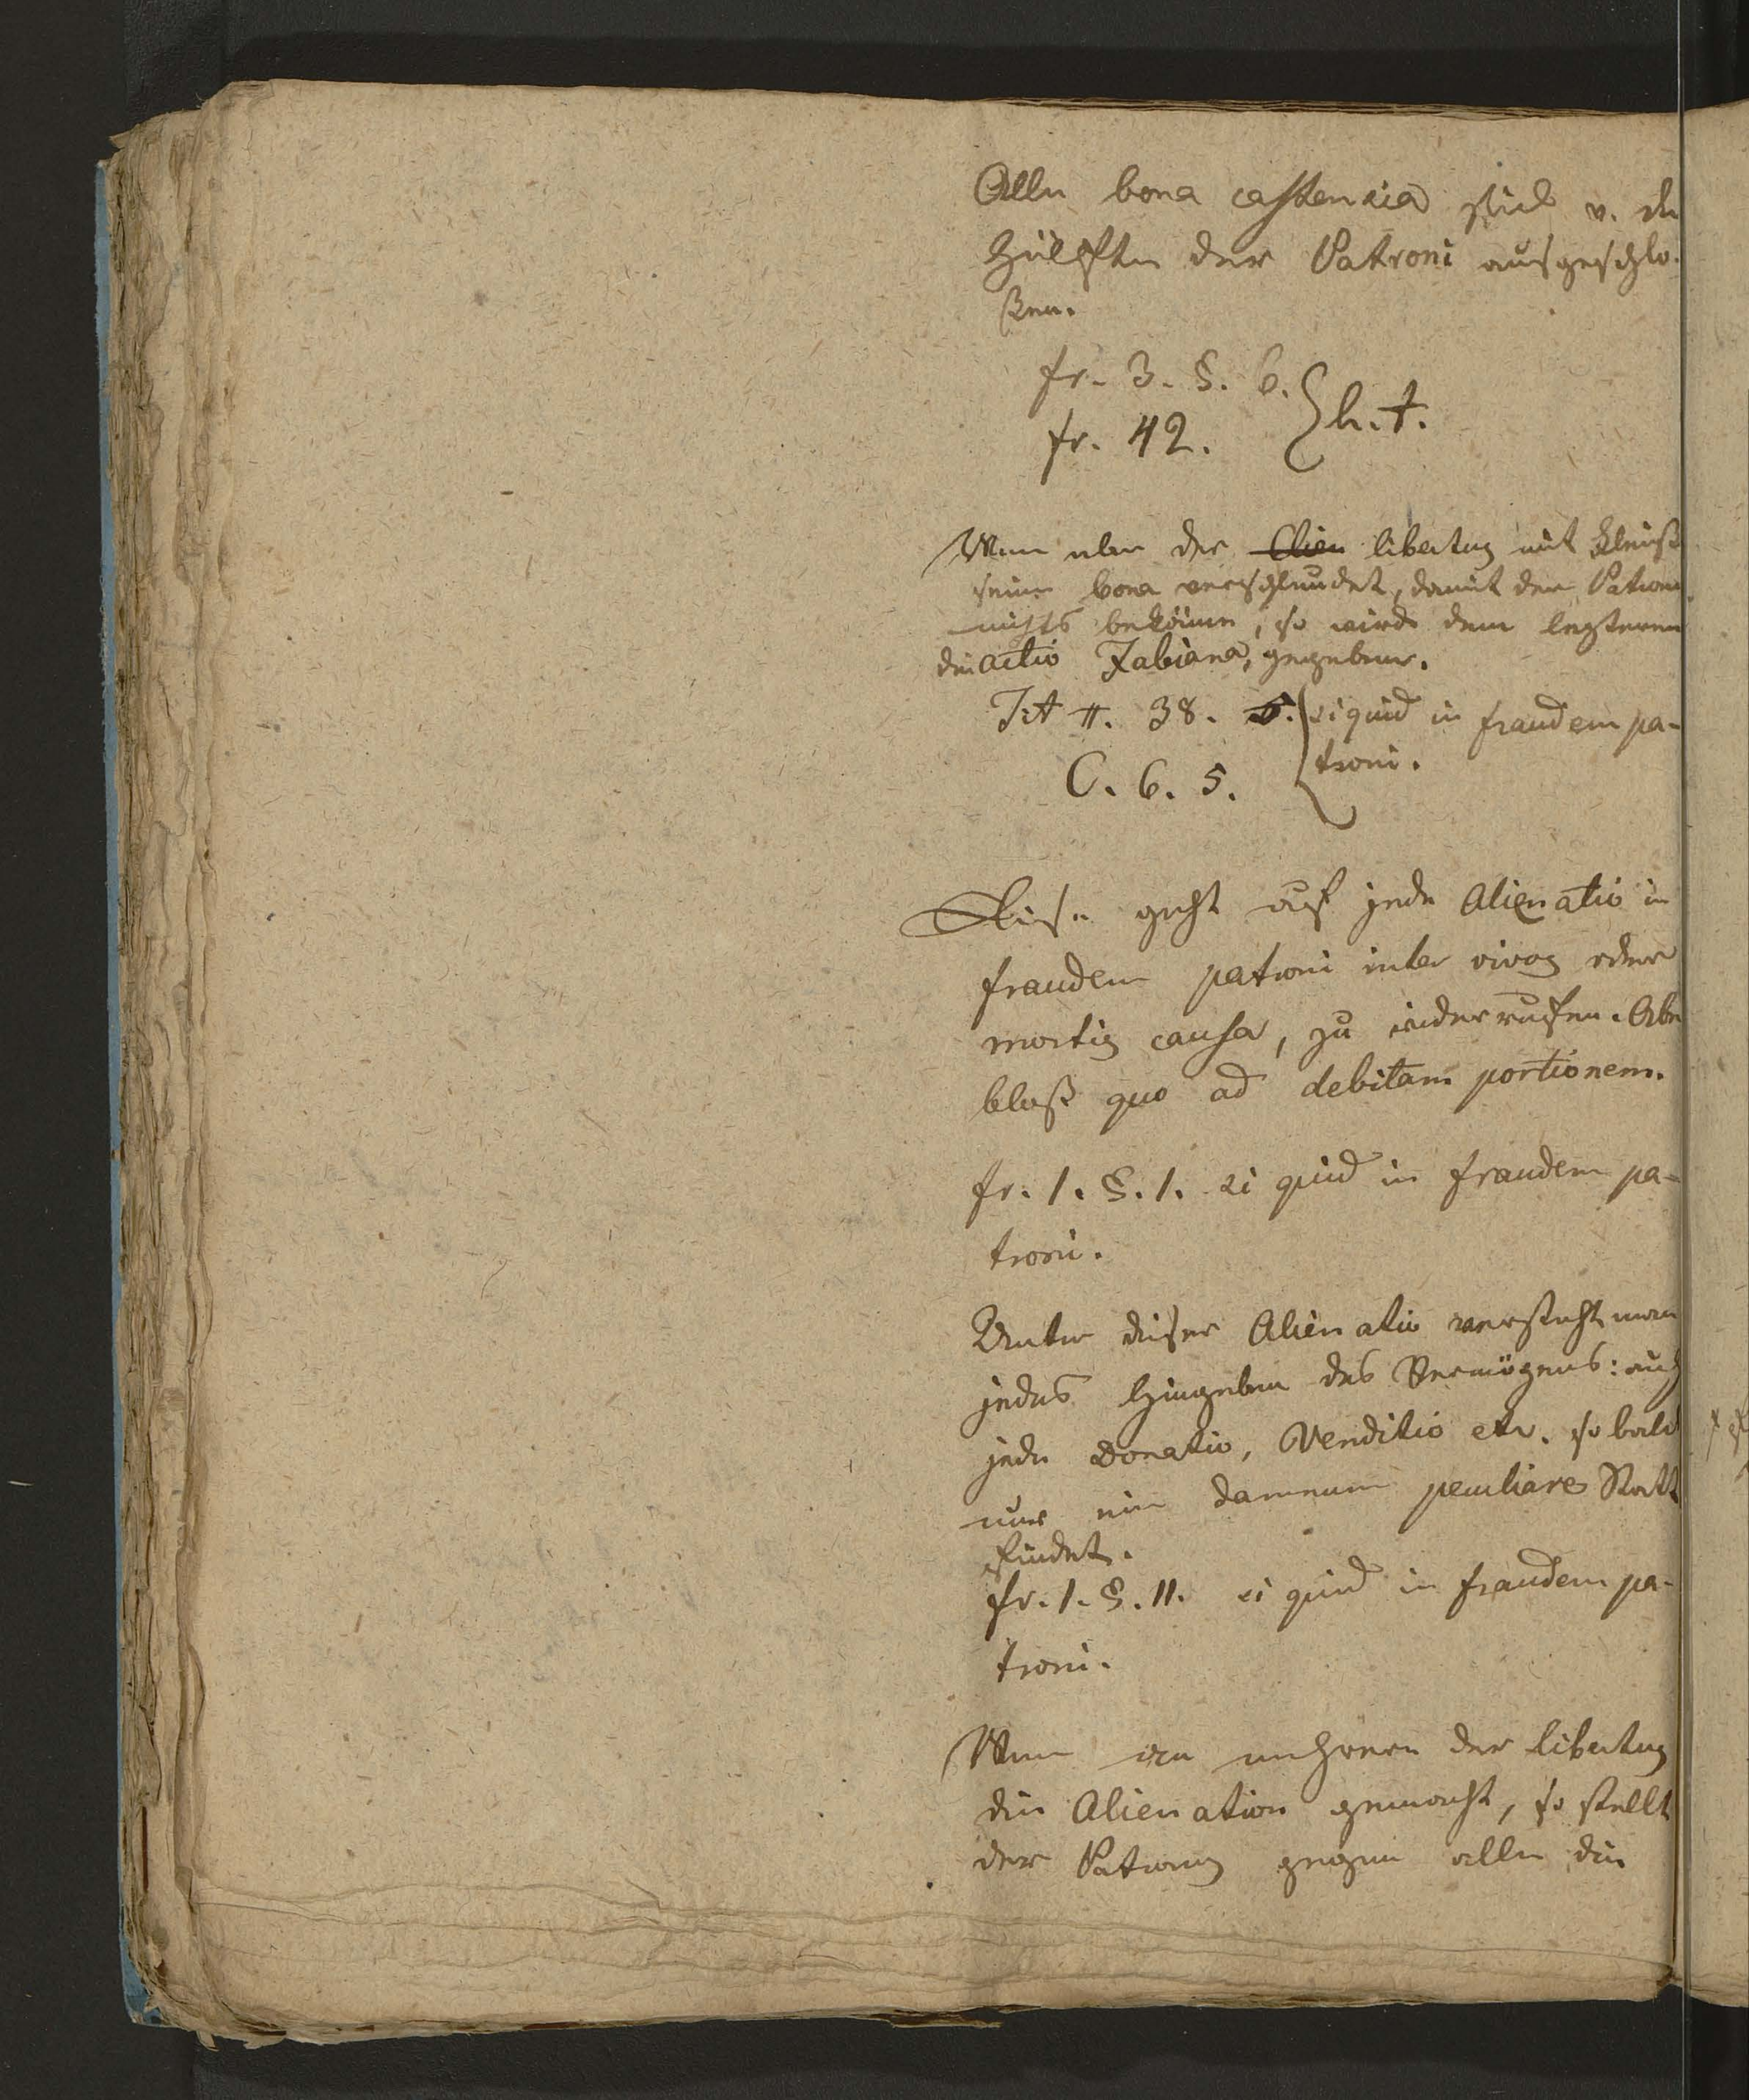 Alle bona castensia sind v. der
Hülfte der Patroni ausgeschlo-
ßen.
fr. 3. §. 6.
fr. 42. } h. t.
Wenn aber der Clien libertus mit Fleiß
seine bona verschleudert, damit der Patron
nichts bekomme, so wird dem lezteren
die actio Fabiana, gegeben.
Tit π. 38. 5. { si quid in fraudem pa-
C. 6. 5. troni.
Diese geht auf jede Alienatio in
fraudem patroni inter vivos oder
mortis causa, zu widerrufen. Aber
bloß quo ad debitam portionem.
fr. 1. §. 1. si quid in fraudem pa-
troni.
Unter dieser Alienatio versteht man
jedes Hingeben des Vermögens: auch
jede Donatio, Venditio etc. so bald
nur ein damnum peculiare Statt
findet.
fr. 1. §. 11. si quid in fraudem pa-
troni.
Wenn an mehrere der libertus
die Alienation gemacht, so stellt
der Patronus gegen alle die